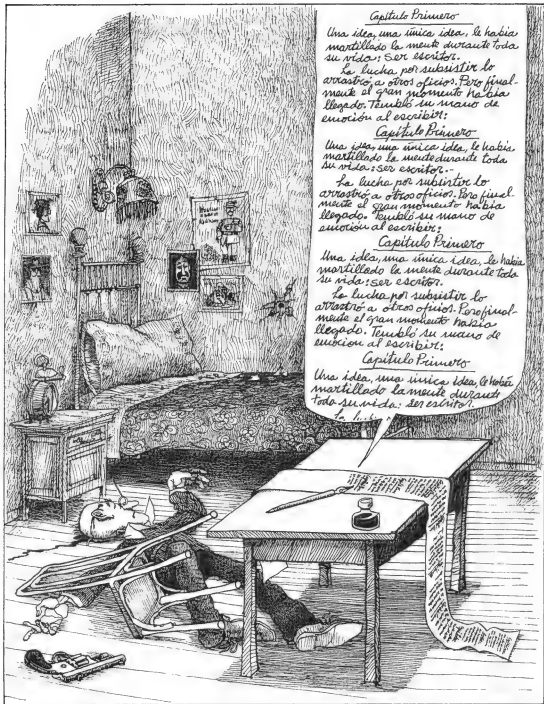 Capítulo Primero
Una idea, una única idea, le había
martillado la mente durante toda
su vida: ser escritor.
La lucha por subsistir lo
arrastró a otros oficios. Pero final-
mente el gran momento había
llegado. Tembló su mano de
emoción al escribir:
Capítulo Primero
Una idea, una única idea, le había
martillado la mente durante toda
su vida: ser escritor.-
La lucha por subsistir lo
arrastró a otros oficios. Pero final-
mente el gran momento había
llegado. Tembló su mano de
emoción al escribir:
Capítulo Primero
Una idea, una única idea, le había
martillado la mente durante toda
su vida: ser escritor.
La lucha por subsistir lo
arrastró a otros oficios. Pero final-
mente el gran momento había
llegado. Tembló su mano de
emoción al escribir:
Capítulo Primero
Una idea, una única idea, le había
martillado la mente durante
toda su vida: ser escritor.
La